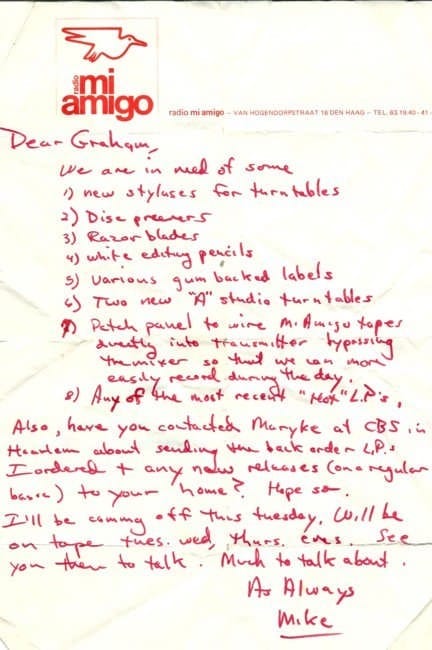 radio
mi
amigo
radio mi amigo — VAN HOGENDORPSTRAAT 16 DEN HAAG — TEL. 63.19.40 - 41 -
Dear Graham,
We are in need of some
1) new styluses for turntables
2) Disc preavers
3) Razor blades
4) white editing pencils
5) Various gum backed labels
6) Two new "A" studio turntables
7) Patch panel to wire Mi Amigo tapes
directly into transmitter bypassing
the mixer so that we can more
easily record during the day.
8) Any of the most recent "Hot" L.P's.
Also, have you contacted Maryke at CBS in
Haarlem about sending the back order L.P.s
I ordered + any new releases (on a regular
basis) to your home? Hope so.
I'll be coming off this tuesday. Will be
on tape tues. wed, thurs. eves. See
you then to talk. Much to talk about.
As Always
Mike